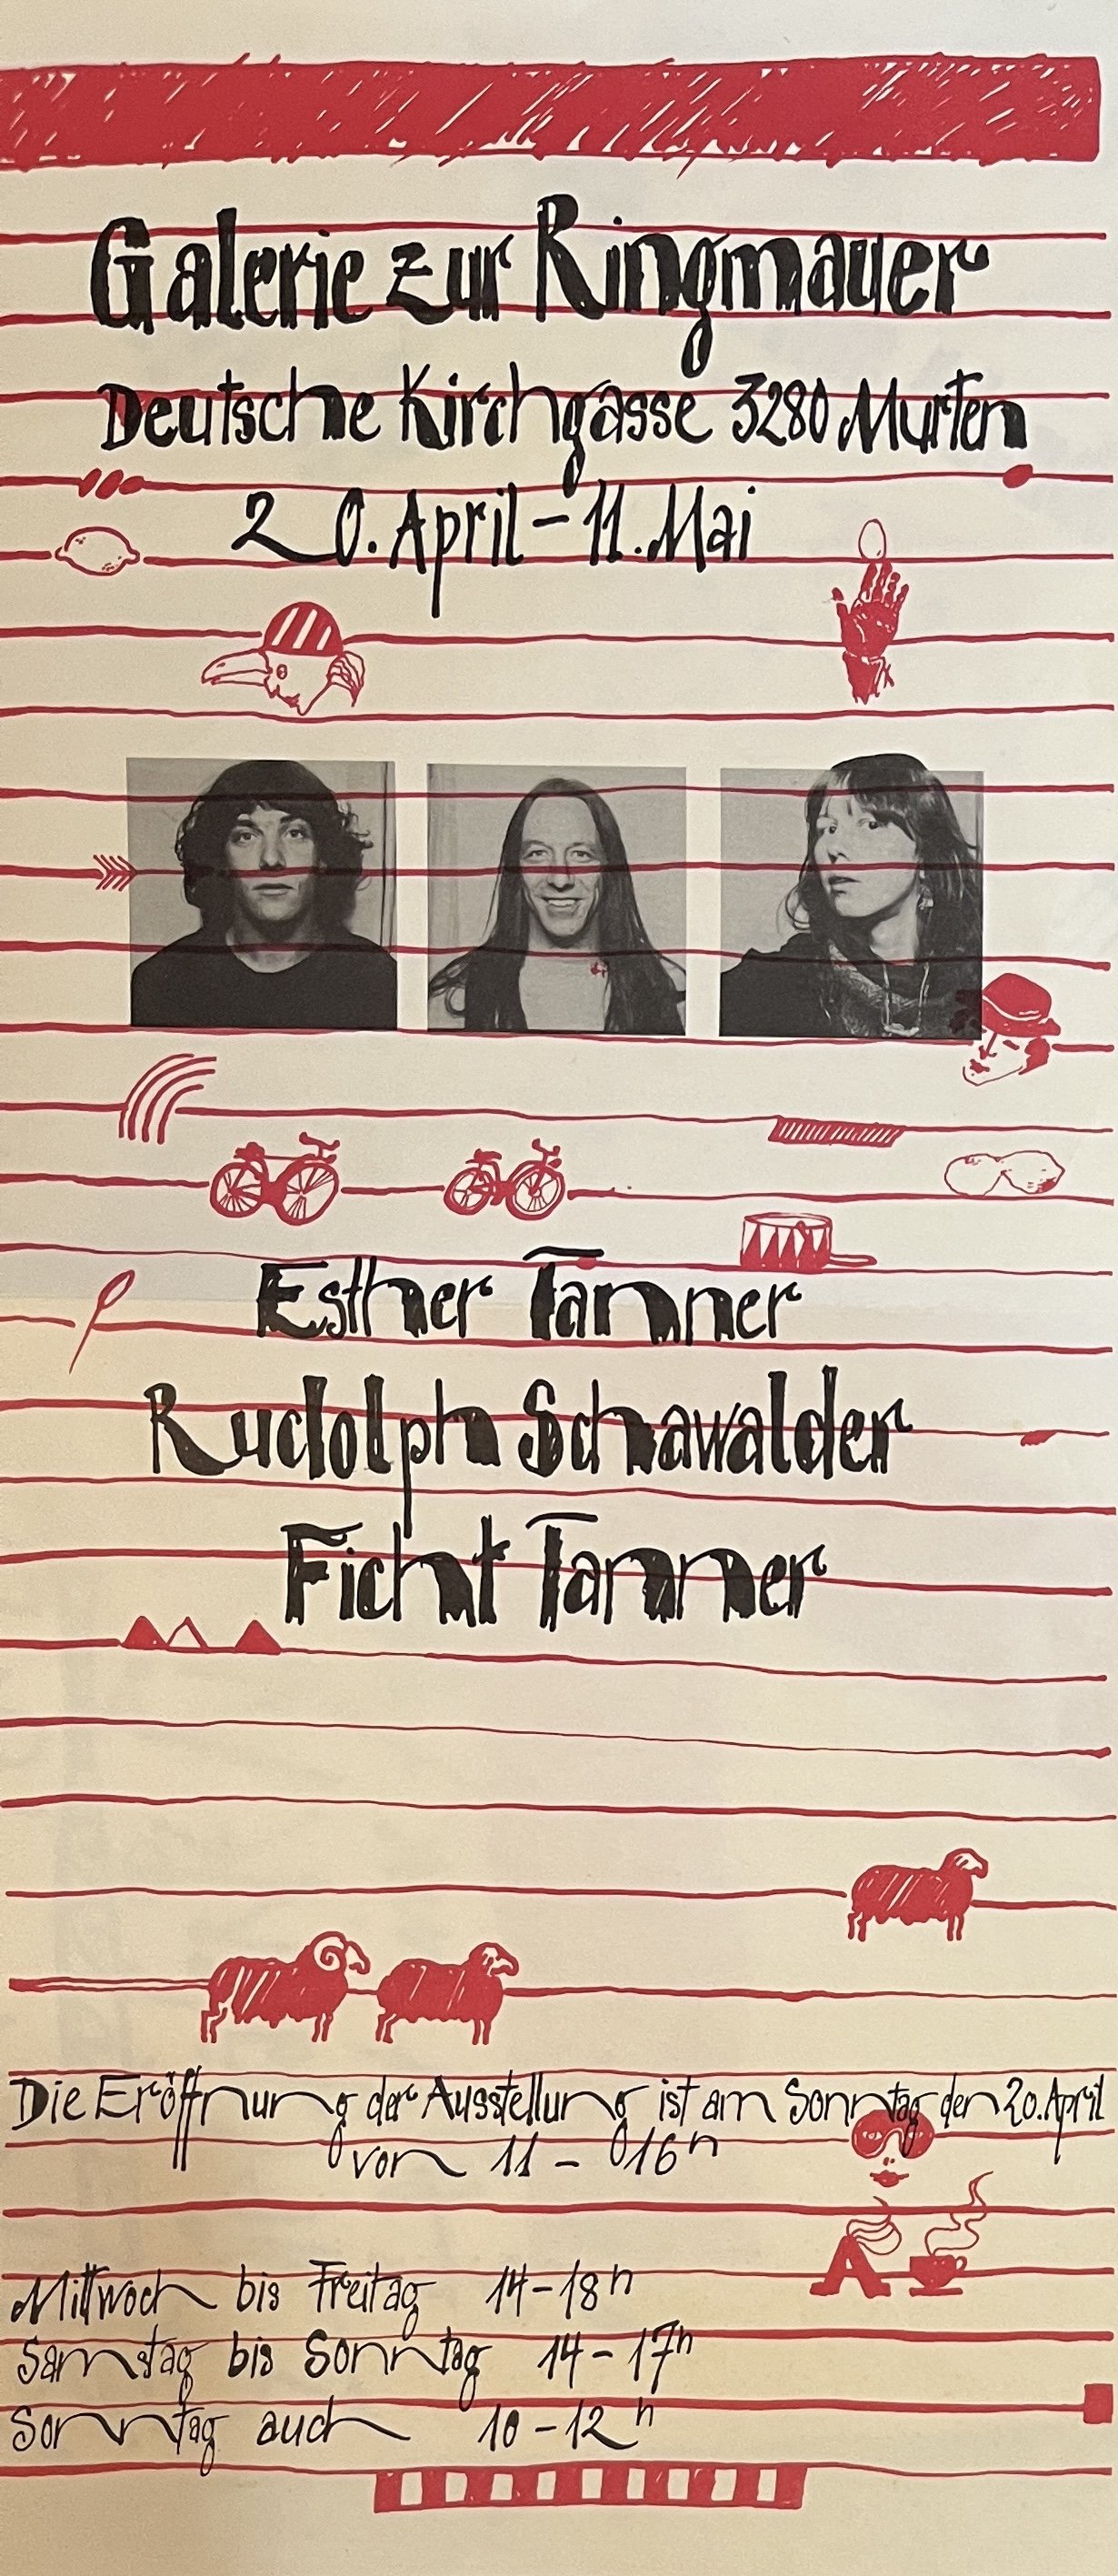 Galerie zur Ringmauer
Deutsche Kirchgasse 3280 Murten
20. April – 11. Mai
Esther Tanner
Rudolph Schawalder
Ficht Tanner
Die Eröffnung der Ausstellung ist am Sonntag den 20. April
von 11 – 16 h
Mittwoch bis Freitag 14 – 18 h
Samstag bis Sonntag 14 – 17 h
Sonntag auch 10 – 12 h
A